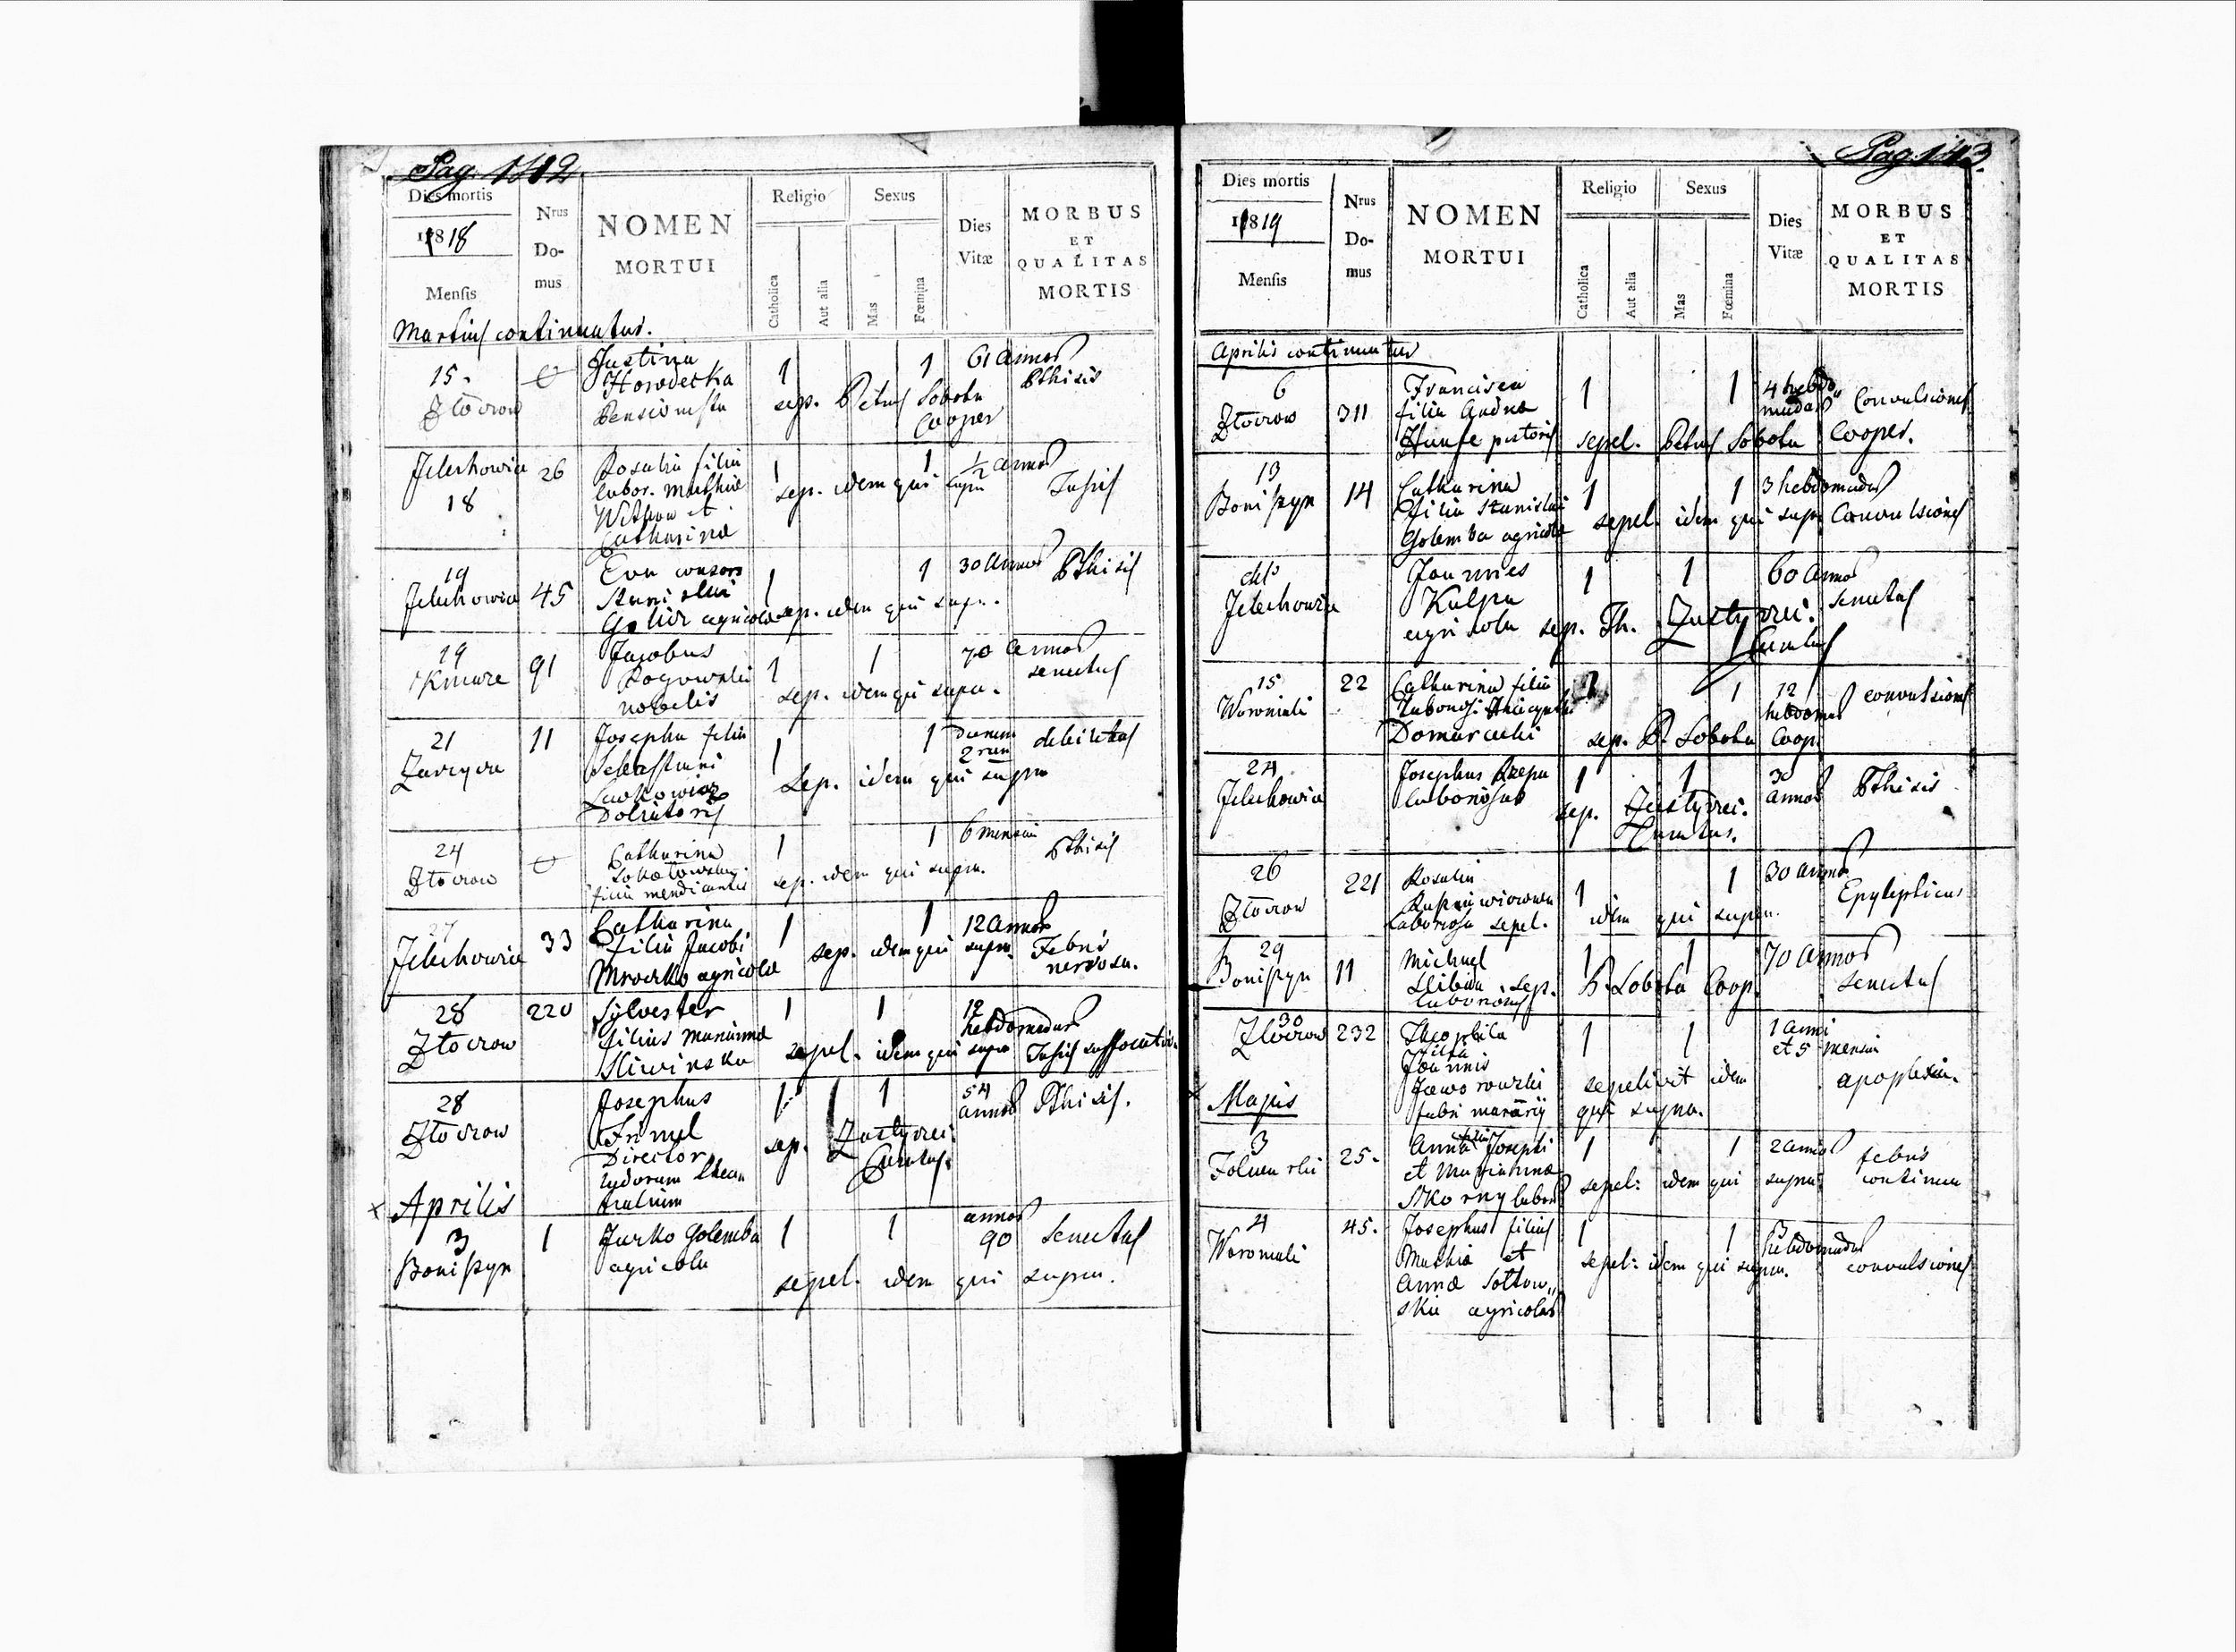 Pag. 142
Dies mortis
1818
Mensis
Nrus
Do-
mus
NOMEN
MORTUI
Religio
Catholica
Aut alia
Sexus
Mas
Fœmina
Dies
Vitæ
MORBUS
ET
QUALITAS
MORTIS
Martius continuatur.
15.
Złoczow
Justina
Howdecka
Pensionista
1
1
61 annos
Pthisis
sep. Petrus Sobota
Cooper
Jelechowice
18
26
Rosalia filia
labor. Mathiæ
et
Catharinæ
1
1
1/2 annos
Tussis
sep. idem qui supra
19
Jelechowice
45
Eva consors
Stanislai
agricolæ
1
1
30 annos
Pthisis
sep. idem qui supr.
19
91
Jacobus
Rogowski
nobilis
1
1
70 annos
senectus
sep. idem qui supra.
21
Zarzyce
11
Josepha filia
Sebastiani
Lewkowicz
Doliatoris
1
1
debilitas
Sep. idem qui supra
24
Złoczow
Catharina
filia mendicantis
1
1
6 mensium
Pthisis
sep. idem qui supra.
27
Jelechowice
33
Catharina
filia Jacobi
Mroczko agricolæ
1
1
12 annos
Febris
nervosa.
sep. idem qui supra.
28
Złoczow
220
Sylvester
filius Mariannæ
Sliwinska
1
1
12
hebdomadas
Tussis suffocativa.
sepel. idem qui supra
28
Złoczow
Josephus
Frimel
Director
ludorum thea„
tralium
1
1
54
annos
Pthisis.
sep. Curatus.
x Aprilis
3
Boniszyn
1
Jurko Golemba
agricola
1
1
annos
90
Senectus
sepel. idem qui supra.
Pag. 143.
Dies mortis
1819
Mensis
Nrus
Do-
mus
NOMEN
MORTUI
Religio
Catholica
Aut alia
Sexus
Mas
Fœmina
Dies
Vitæ
MORBUS
ET
QUALITAS
MORTIS
Aprilis continuatur
6
Złoczow
311
Francisca
filia Andreæ
pistoris
1
1
4 hebdo„
madas
Convulsiones
sepel. Petrus Sobota Cooper.
13
Boniszyn
14
Catharina
filia Stanislai
Golemba agricolæ
1
1
3 hebdomadas
Convulsiones
sepel. idem qui supr.
dtto
Jelechowice
Joannes
Kulpa
agricola
1
1
60 annos
senectus
sep. Th.
Curatus
15
Woroniaki
22
Catharina filia
Domaracki
1
1
12
hebdomas
convulsiones
sep. P. Sobota Coop.
24
Jelechowice
Josephus Rzepa
laboriosus
1
1
30
annos
Pthisis
sep.
Curatus.
26
Złoczow
221
Rosalia
laboriosa sepel.
1
1
30 annos
Epylepticus
idem qui supra.
29
Boniszyn
11
Michael
sep.
laboriosus
1
1
70 annos
senectus
P. Sobota Coop.
30
Złoczow
232
Theophila
filia
Joannis
Jaworowski
fabri murarij
1
1
1 anni
et 5 mensium
apoplexia.
sepelivit idem
qui supra.
x Majus
3
Folwarki
25.
Anna filia Josephi
et Mariannæ
Skorny labor
1
1
2 annos
febris
continua
sepel: idem qui supra
4
Woroniaki
45.
Josephus filius
Mathiæ et
Annæ Soltow„
skie agricolas
1
1
3
hebdomadas
convulsiones
sepel: idem qui supra.